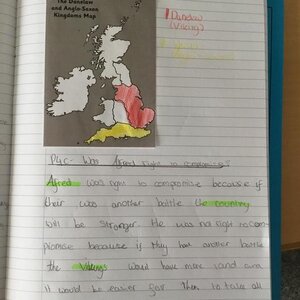 The Danelaw
and Anglo-Saxon
Kingdoms Map
Danelaw
(Viking)
P4C - Was Alfred right to compromise?
Alfred was right to compromise because if
their was another battle the country
will be stronger. He was not right to com-
promise because if they had another battle
the Vikings would have more and
it would be easier for them to take all